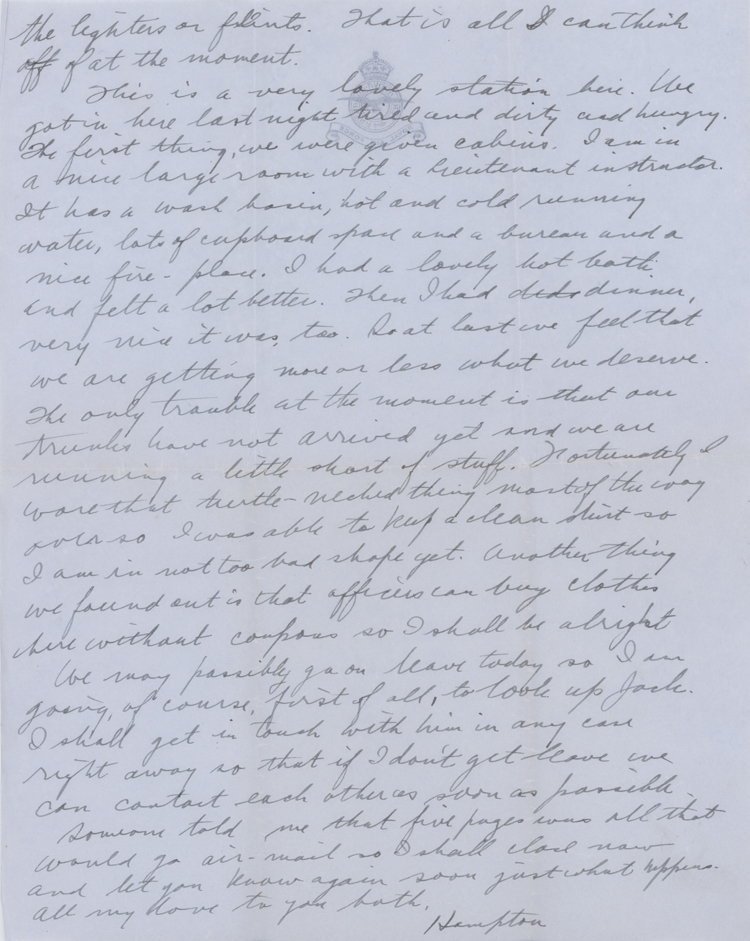 the lighters or flints. That is all I can think
off of at the moment.
This is a very lovely station here. We
got in here last night tired and dirty and hungry.
The first thing, we were given cabins. I am in
a nice large room with a lieutenant instructor.
It has a wash basin, hot and cold running
water, lots of cupboard space and a bureau and a
nice fire-place. I had a lovely hot bath
and felt a lot better. Then I had dinner,
very nice it was, too. So at last we feel that
we are getting more or less what we deserve.
The only trouble at the moment is that our
trunks have not arrived yet and we are
running a little short of stuff. Fortunately I
wore that turtle-necked thing most of the way
over so I was able to keep a clean shirt so
I am in not too bad shape yet. Another thing
we found out is that officers can buy clothes
here without coupons so I shall be alright
We may possibly go on leave today so I am
going, of course, first of all, to look up Jack.
I shall get in touch with him in any case
right away so that if I don't get leave we
can contact each other as soon as possible.
Someone told me that five pages was all that
would go air-mail so I shall close now
and let you know again soon just what happens.
All my love to you both,
Hampton